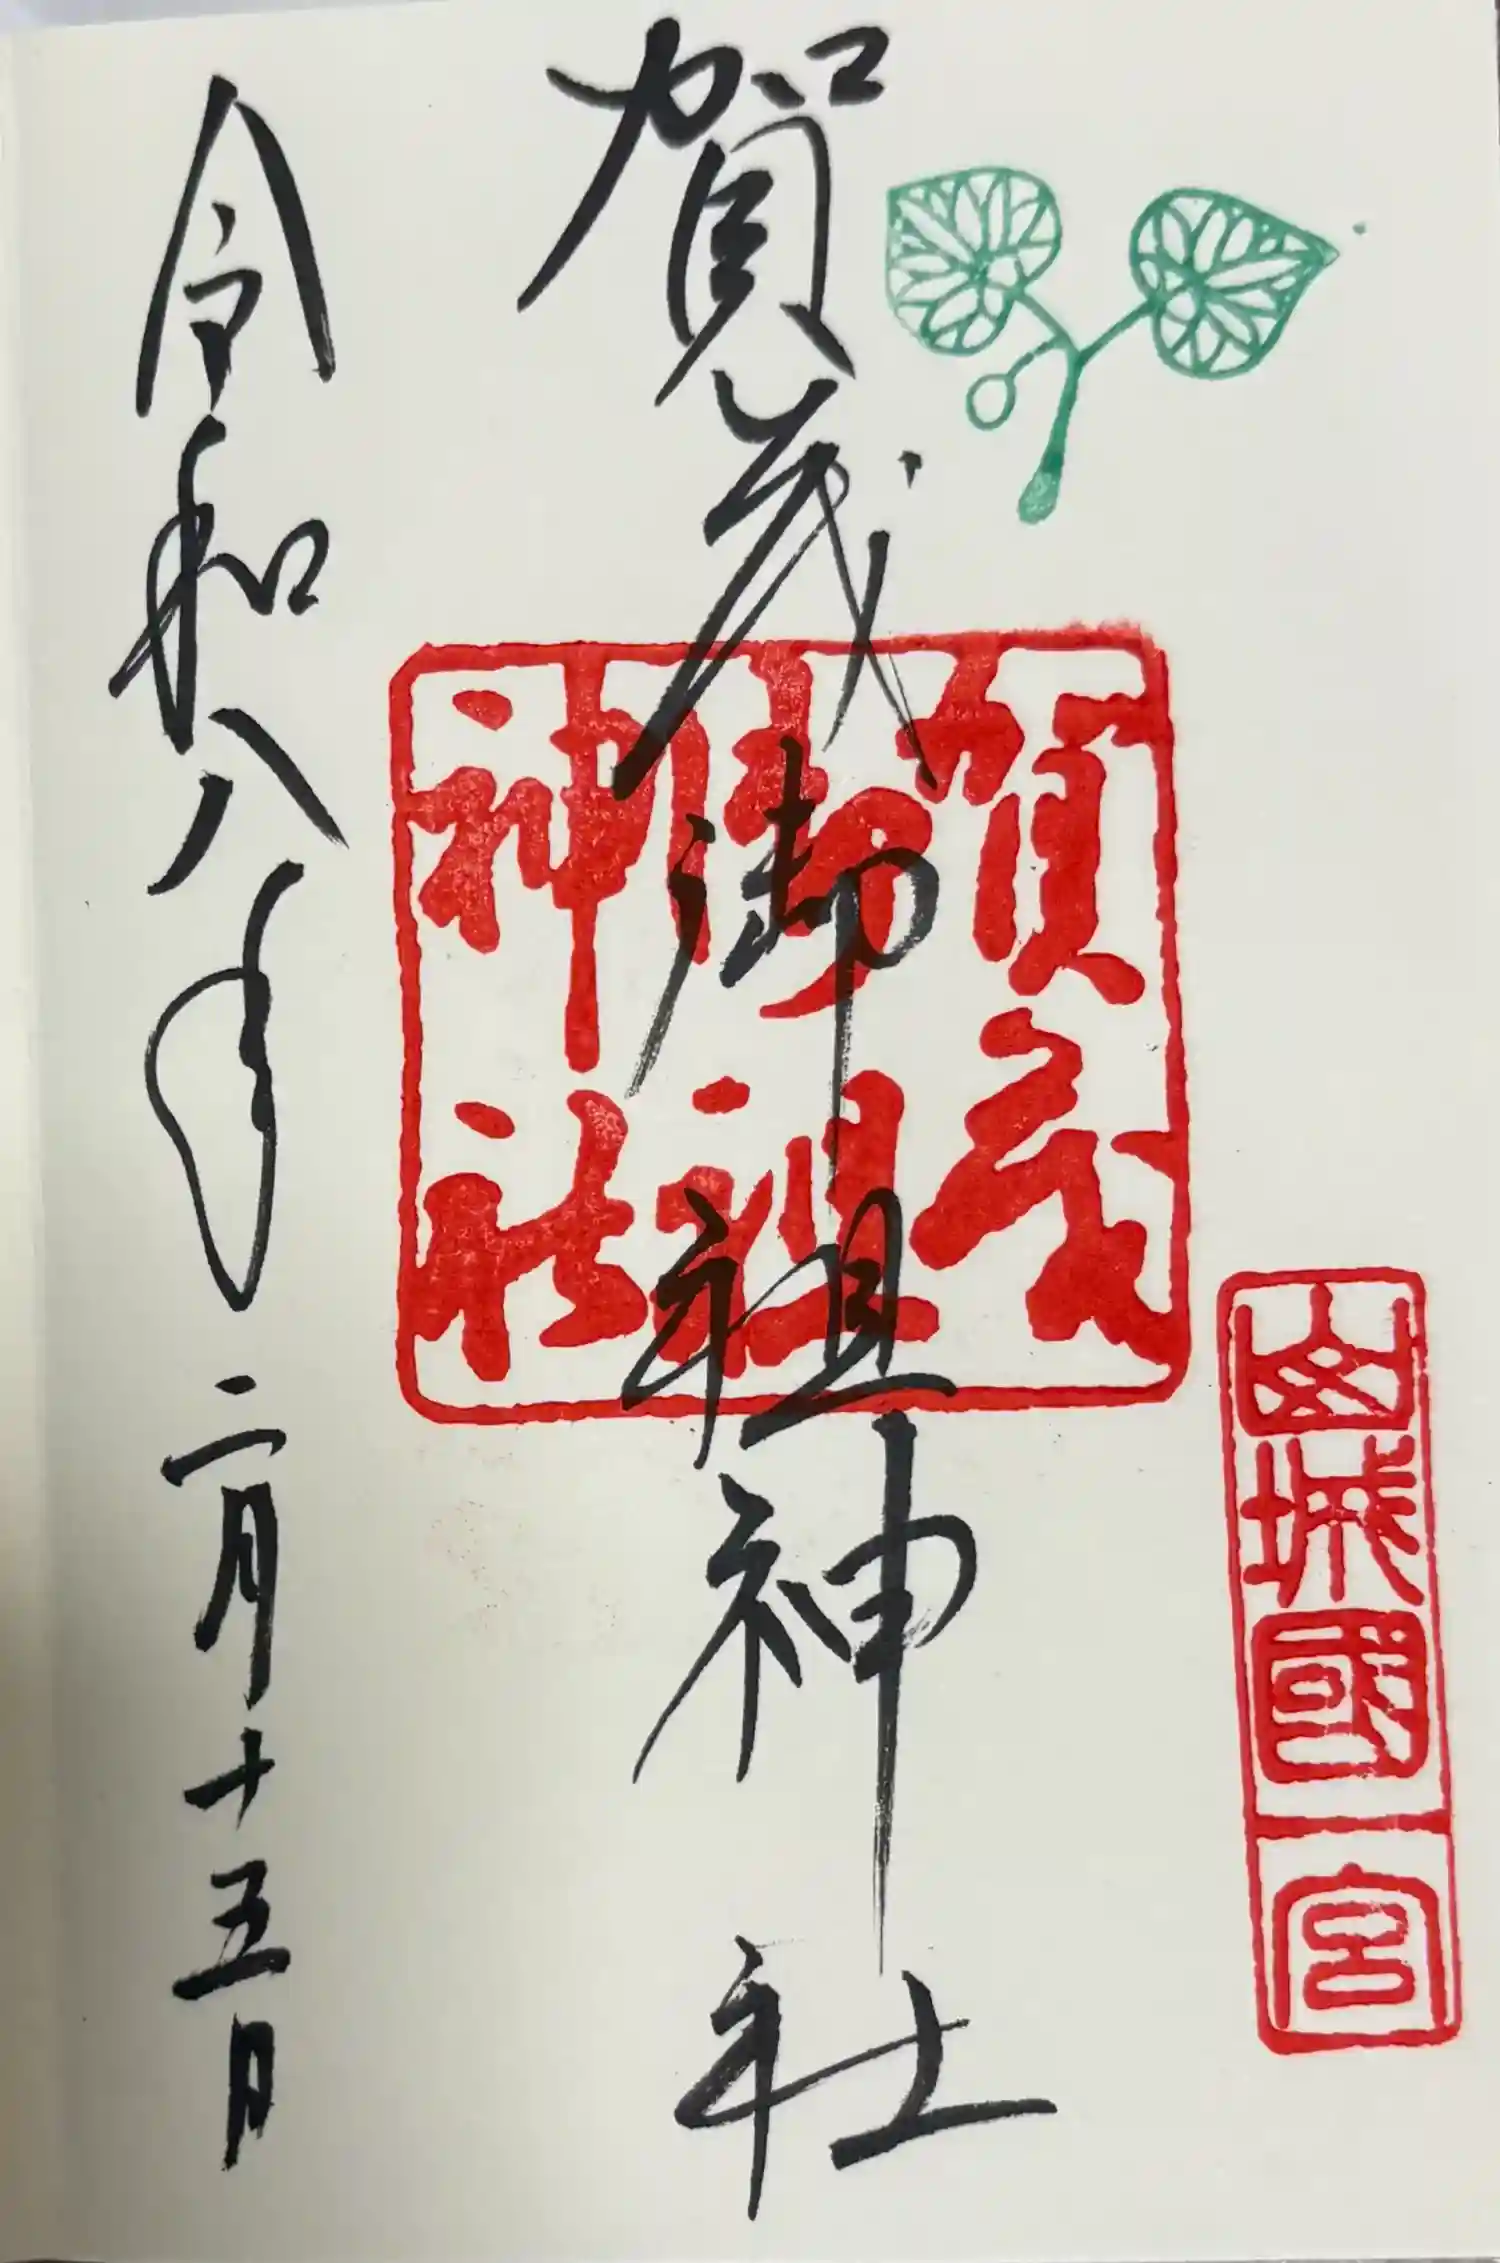 山城國一宮
賀茂御祖神社
賀茂
御祖
神社
令和八年二月十五日